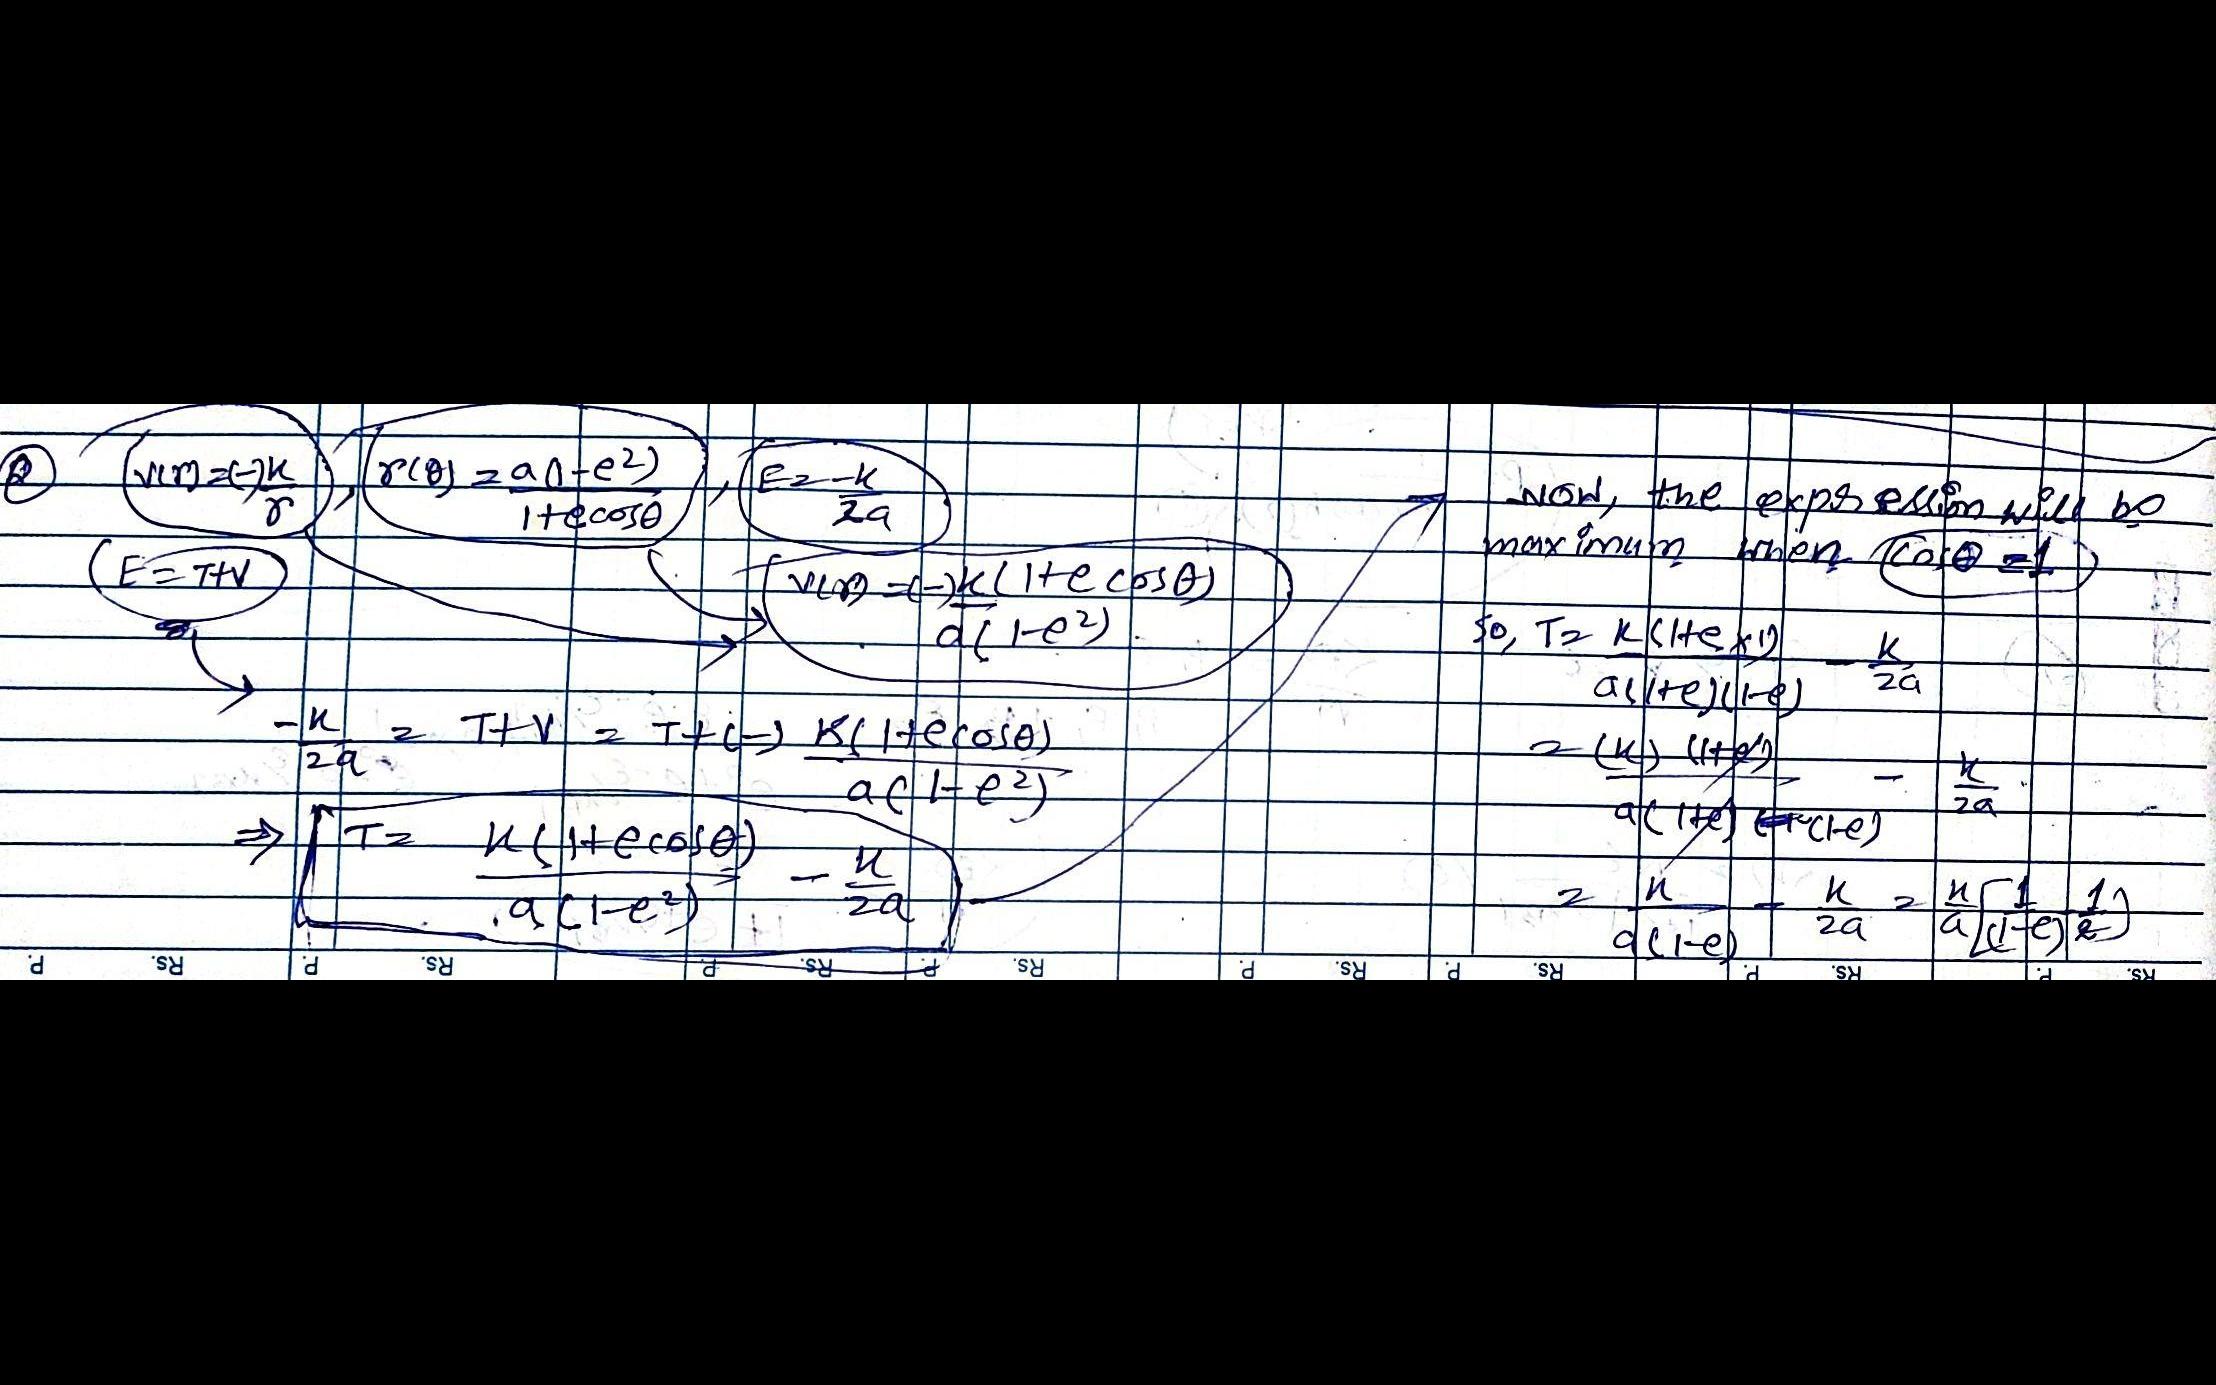 ② V(r) = (-) k/r , r(θ) = a(1-e²)/1+ecosθ , E = -k/2a
E = T+V
V(r) = (-) k(1+e cosθ)/a(1-e²)
-k/2a = T+V = T+(-) k(1+ecosθ)/a(1-e²)
⇒ T = k(1+ecosθ)/a(1-e²) - k/2a
NOW, the expression will be
maximum when cosθ = 1
So, T = k(1+e×1)/a(1+e)(1-e) - k/2a
= (k) (1+e)/a(1+e) (1-e) - k/2a
= k/a(1-e) - k/2a = k/a [1/(1-e) - 1/2]
P. Rs. P. Rs. P. Rs. P. Rs. P. Rs. P. Rs. P. Rs. P. Rs.